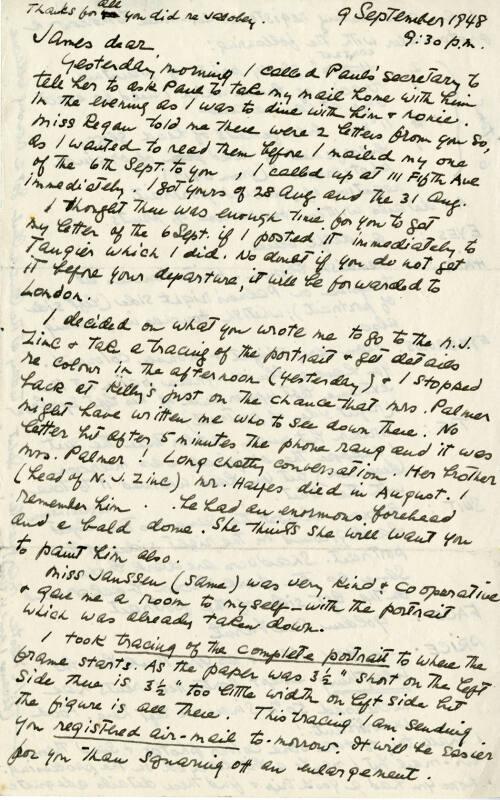 Thanks for all you did re Jacobey.
9 September 1948
9:30 p.m.
James dear
Yesterday morning I called Paul's secretary to
tell her to ask Paul to take my mail home with him
in the evening as I was to dine with him & Ronie.
Miss Regan told me there were 2 letters from you so,
as I wanted to read them before I mailed my one
of the 6th Sept. to you, I called up at 111 Fifth Ave
immediately. I got yours of 28 Aug and the 31 Aug.
I thought there was enough time for you to get
my letter of the 6 Sept. if I posted it immediately to
Tangier which I did. No doubt if you do not get
it before your departure, it will be forwarded to
London.
I decided on what you wrote me to go to the N.J.
Zinc & take a tracing of the portrait & get details
re colour in the afternoon (yesterday) & I stopped
back at Kelly's just on the chance that Mrs. Palmer
might have written me who to see down there. No
letter but after 5 minutes the phone rang and it was
Mrs. Palmer! Long chatty conversation. Her brother
(head of N.J. Zinc) Mr. Hayes died in August. I
remember him. He had an enormous forehead
and a bald dome. She thinks she will want you
to paint him also.
Miss Janssen (same) was very kind & cooperative
& gave me a room to myself - with the portrait
which was already taken down.
I took tracing of the complete portrait to where the
frame starts. As the paper was 3½" short on the left
side there is 3½" too little width on left side but
the figure is all there. This tracing I am sending
you registered air-mail to-morrow. It will be easier
for you than squaring off an enlargement.